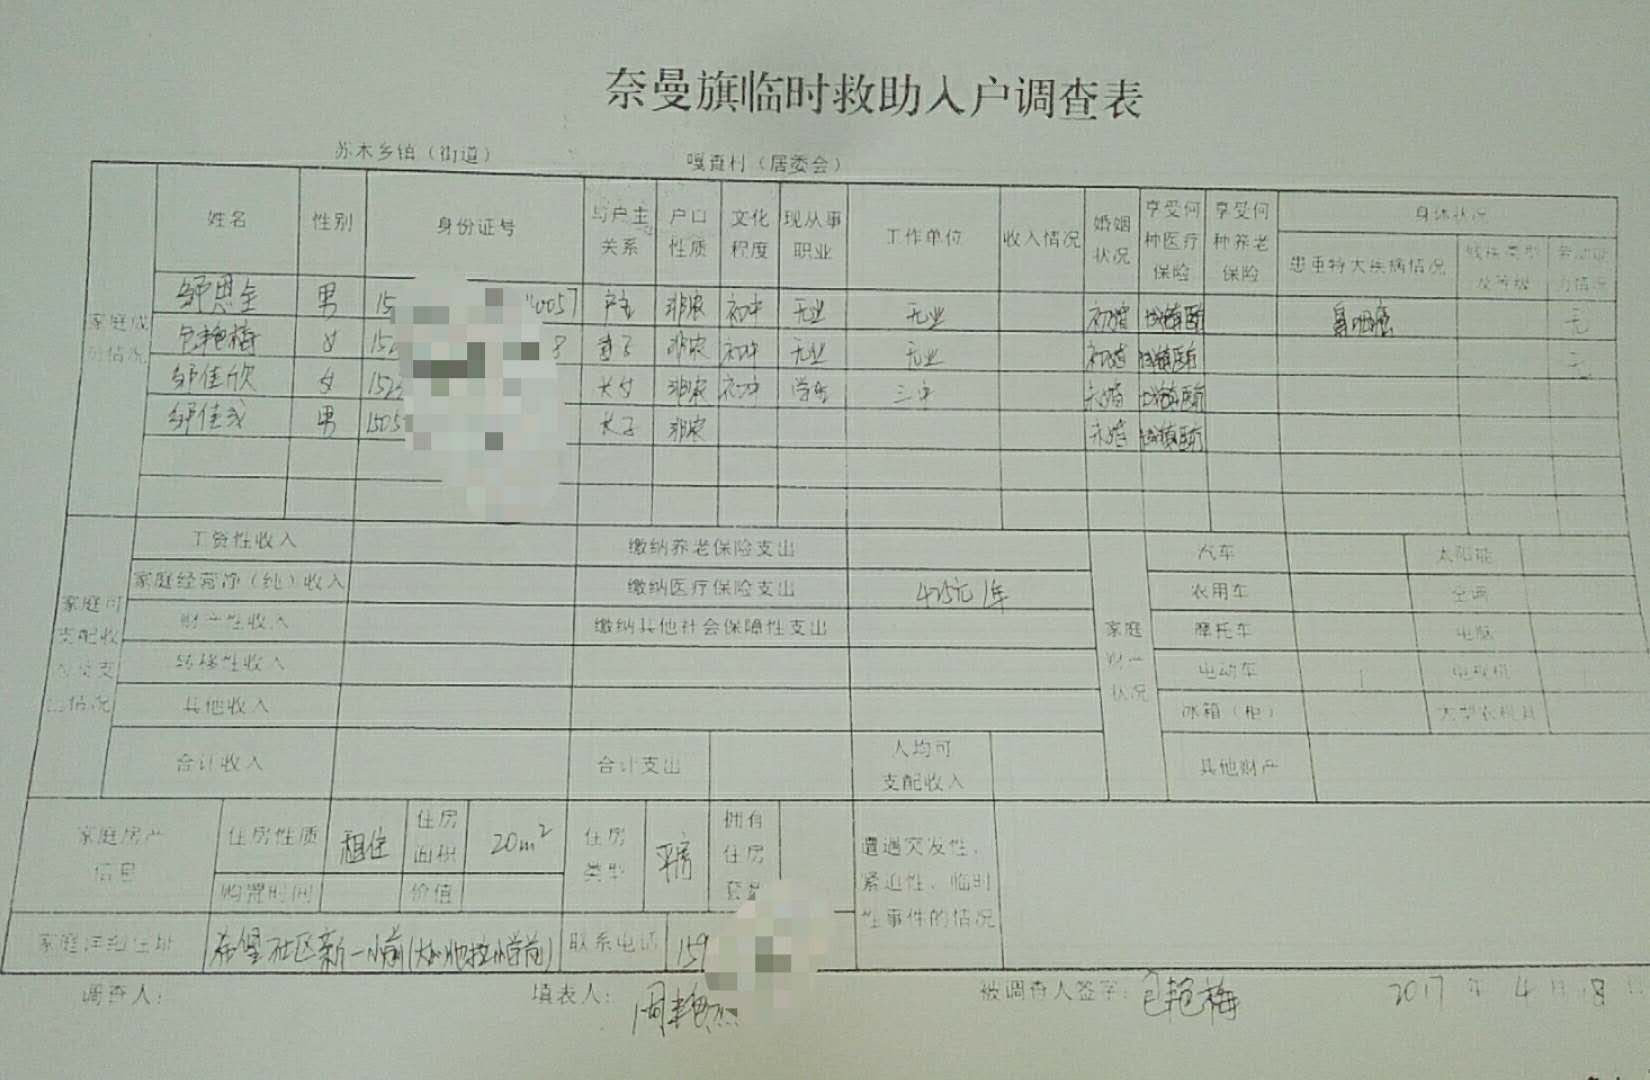 奈曼旗临时救助入户调查表
苏木乡镇（街道） 嘎查村（居委会）
家庭成员情况 姓名 性别 身份证号 与户主关系 户口性质 文化程度 现从事职业 工作单位 收入情况 婚姻状况 享受何种医疗保险 享受何种养老保险 身体状况
患重特大疾病情况 残疾类型及等级 劳动能力情况
邹恩全 男 15 0057 户主 非农 初中 无业 无业 初婚 城镇医 鼻咽癌 无
包艳梅 女 152 8 妻子 非农 初中 无业 无业 初婚 城镇医 无
邹佳欣 女 152 长女 非农 初中 学生 三中 未婚 城镇医
邹佳 男 1505 长子 非农 未婚 城镇医
家庭可支配收入及支出情况 工资性收入 缴纳养老保险支出 家庭财产状况 汽车 太阳能
家庭经营净（纯）收入 缴纳医疗保险支出 425元/年 农用车 空调
财产性收入 缴纳其他社会保障性支出 摩托车 电脑
转移性收入 电动车 1 电视机
其他收入 冰箱（柜） 大型农机具
合计收入 合计支出 人均可支配收入 其他财产
家庭房产信息 住房性质 租住 住房面积 20m² 住房类型 平房 拥有住房套 遭遇突发性、紧迫性、临时性事件的情况
购置时间 价值
家庭详细住址 社区新一小前 联系电话 159
调查人： 填表人：周艳杰 被调查人签字：包艳梅 2017年4月18日